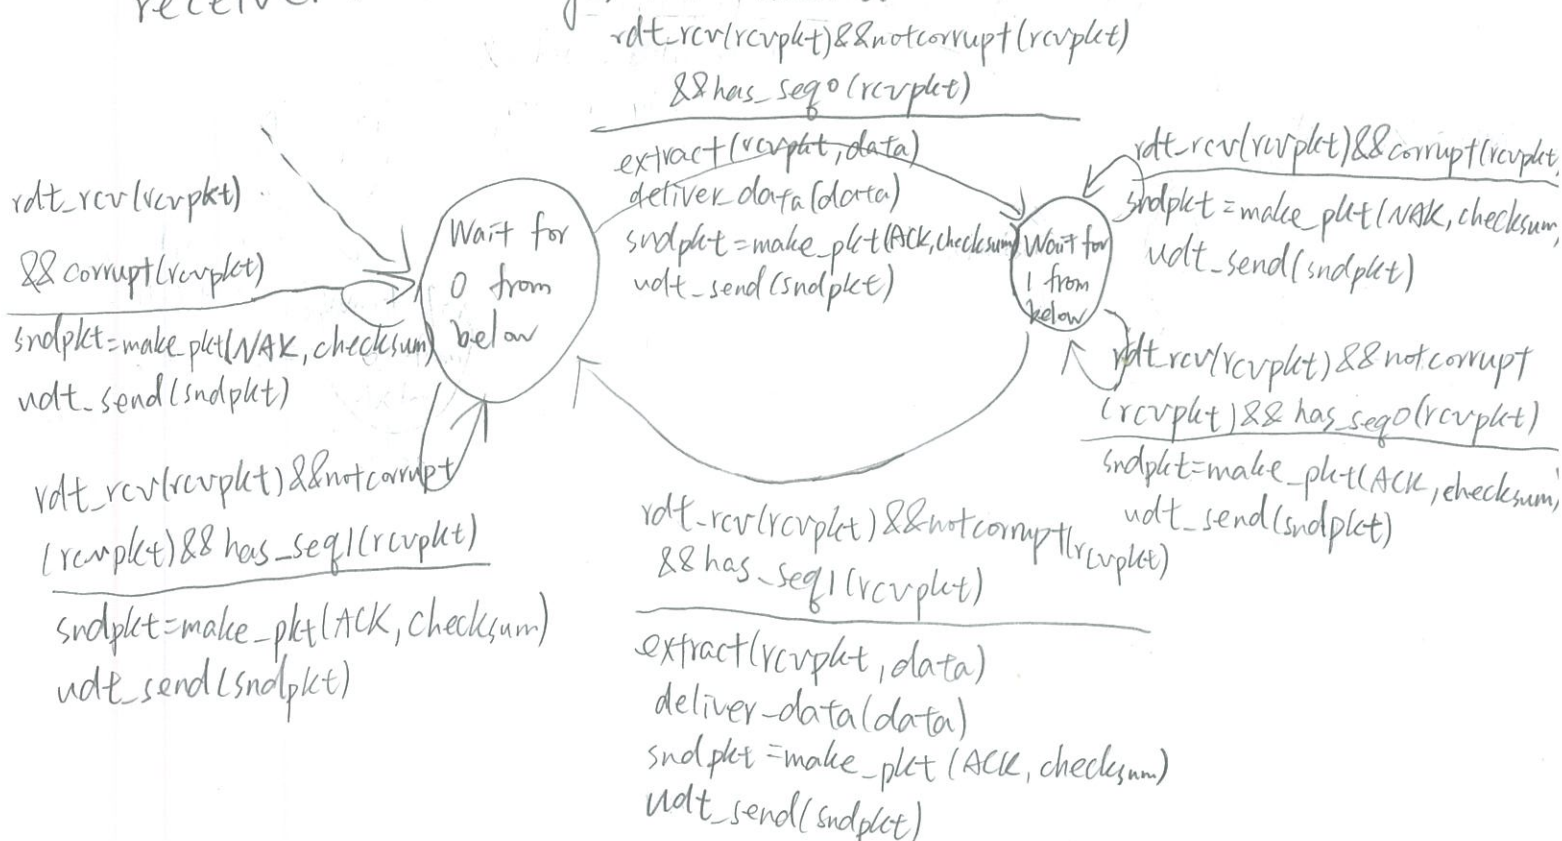 receiver
rdt_rcv(rcvpkt)&&notcorrupt(rcvpkt)
&&has_seq0(rcvpkt)
extract(rcvpkt,data)
deliver_data(data)
sndpkt=make_pkt(ACK,checksum)
udt_send(sndpkt)
rdt_rcv(rcvpkt)
&&corrupt(rcvpkt)
sndpkt=make_pkt(NAK,checksum)
udt_send(sndpkt)
Wait for
0 from
below
Wait for
1 from
below
rdt_rcv(rcvpkt)&&corrupt(rcvpkt
sndpkt=make_pkt(NAK,checksum,
udt_send(sndpkt)
rdt_rcv(rcvpkt)&&notcorrupt
(rcvpkt)&&has_seq0(rcvpkt)
sndpkt=make_pkt(ACK,checksum,
udt_send(sndpkt)
rdt_rcv(rcvpkt)&&notcorrupt
(rcvpkt)&&has_seq1(rcvpkt)
sndpkt=make_pkt(ACK,checksum)
udt_send(sndpkt)
rdt_rcv(rcvpkt)&&notcorrupt(rcvpkt)
&&has_seq1(rcvpkt)
extract(rcvpkt,data)
deliver_data(data)
sndpkt=make_pkt(ACK,checksum)
udt_send(sndpkt)